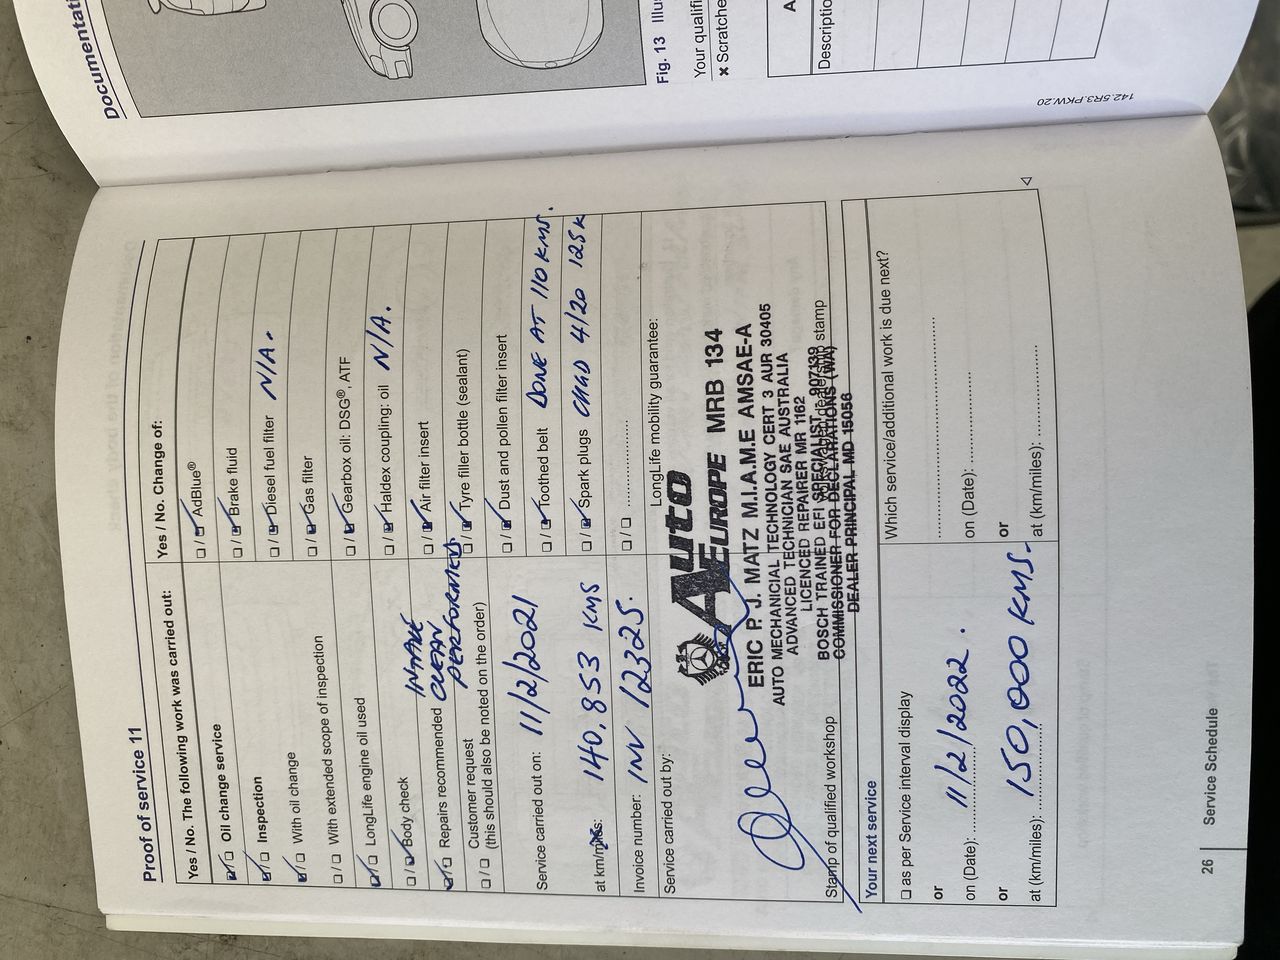 Documentati
Fig. 13 Illus
Your qualifi
× Scratche
A
Descriptio
142.5R3.PKW.20
Proof of service 11
Yes / No. The following work was carried out:
☑/☐ Oil change service
☑/☐ Inspection
☑/☐ With oil change
☐/☐ With extended scope of inspection
☑/☐ LongLife engine oil used
☐/☑ Body check
☑/☐ Repairs recommended INTAKE CLEAN PERFORMED.
☐/☐ Customer request
(this should also be noted on the order)
Yes / No. Change of:
☐/☑ AdBlue®
☐/☑ Brake fluid
☐/☑ Diesel fuel filter N/A.
☐/☑ Gas filter
☐/☑ Gearbox oil: DSG®, ATF
☐/☑ Haldex coupling: oil N/A.
☐/☑ Air filter insert
☐/☑ Tyre filler bottle (sealant)
☐/☑ Dust and pollen filter insert
☐/☑ Toothed belt DONE AT 110 KMS.
☐/☑ Spark plugs CHGD 4/20 125K
☐/☐ ....................
Service carried out on: 11/2/2021
at km/miles: 140,853 KMS
Invoice number: INV 12325.
Service carried out by:
LongLife mobility guarantee:
Auto
Europe MRB 134
ERIC P. J. MATZ M.I.A.M.E AMSAE-A
AUTO MECHANICIAL TECHNOLOGY CERT 3 AUR 30405
ADVANCED TECHNICIAN SAE AUSTRALIA
LICENCED REPAIRER MR 1162
BOSCH TRAINED EFI SPECIALIST 907139
COMMISSIONER FOR DECLARATIONS (WA)
DEALER PRINCIPAL MD 15056
Stamp of qualified workshop
stamp
Your next service
☐ as per Service interval display
or
on (Date): 11/2/2022.
or
at (km/miles): 150,000 KMS.
Which service/additional work is due next?
....................
on (Date): ....................
or
at (km/miles): ....................
26
Service Schedule